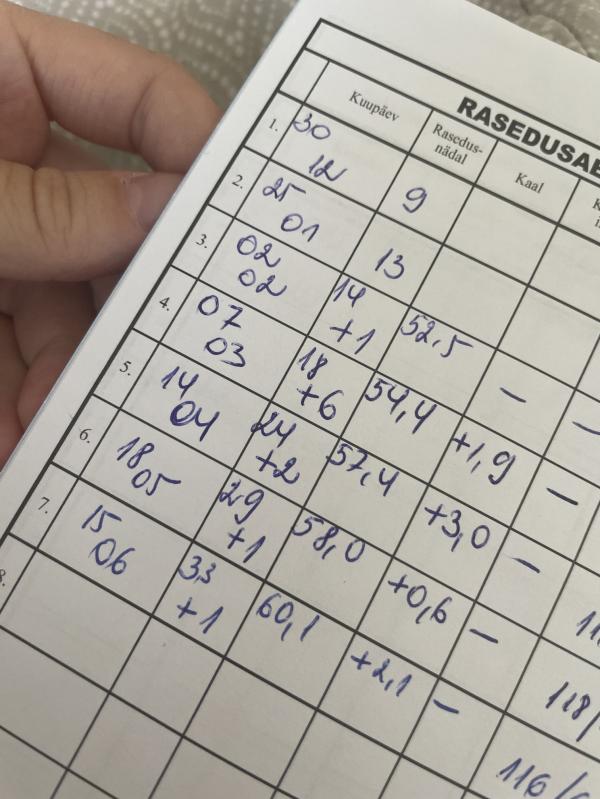 RASEDUSAE
Kuupäev
Rasedus-
nädal
Kaal
1. 30
12
9
2. 25
01
13
3. 02
02
14
+1
52,5
–
–
4. 07
03
18
+6
54,4
+1,9
–
5. 14
04
24
+2
57,4
+3,0
–
6. 18
05
29
+1
58,0
+0,6
–
118/
7. 15
06
33
+1
60,1
+2,1
–
116/
8.